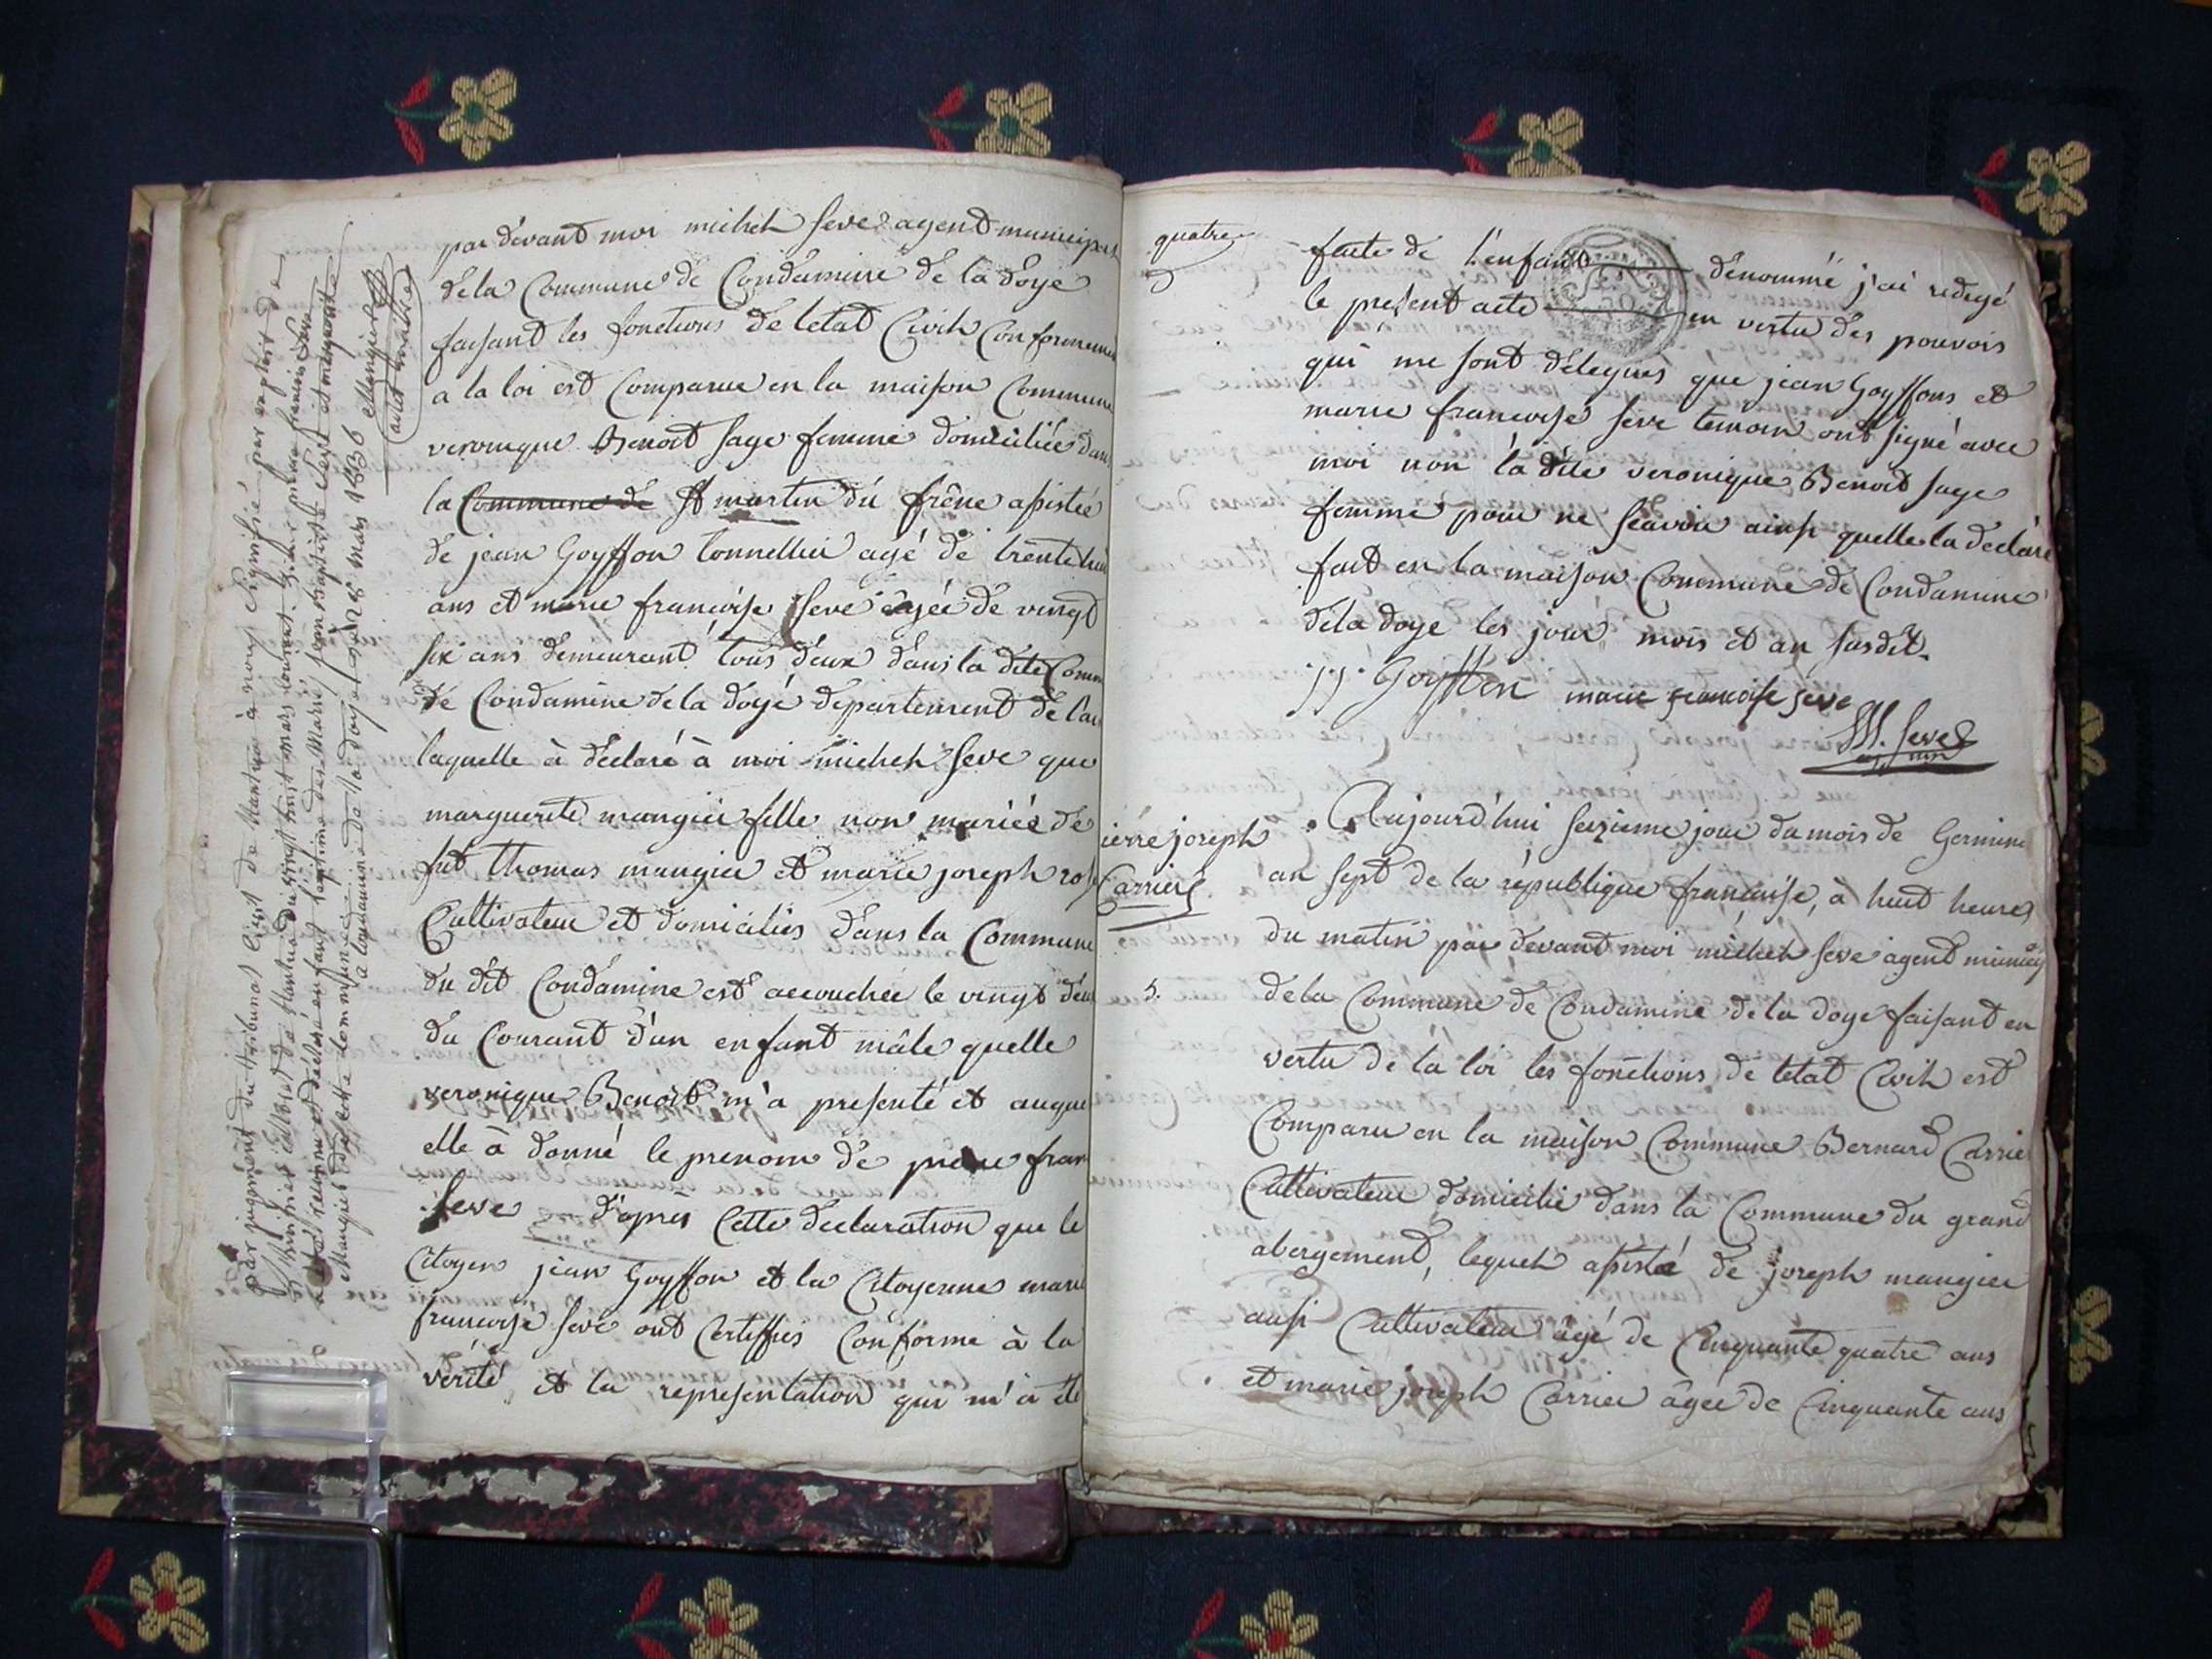 par devant moi michel seve agent municipal
de la Commune de Condamine de la doye
faisant les fonctions de letat Civil Conformement
a la loi est Comparue en la maison Commune
veronique Benoit sage femme domiciliée dans
la Commune de St martin du frêne assistée
de jean Goyffon tonnellier agé de trente huit
ans et marie françoise seve agée de vingt
six ans demeurant tous deux dans la dite Comm
de Condamine de la doye departement de l'ain
laquelle à déclaré à moi michel seve que
marguerite mangier fille non mariée de
fut thomas mangier et marie joseph
Cultivateur et domiciliés dans la Commune
du dit Condamine est accouchée le vingt deux
du Courant d'un enfant mâle quelle
veronique Benoit m'a presenté et auquel
elle à donné le prenom de pierre fran
seve d'apres Cette declaration que le
Citoyen jean Goyffon et la Citoyenne marie
francoise seve ont Certiffiés Conforme à la
vérité et la representation qui m'a été
par jugement du tribunal Civil de Nantua à nous signifié par exploit de
huissier de Nantua du vingt huit mars courant
a été reconnu et déclaré enfant légitime des Mariés jean Baptiste Seve et marguerite
Mangier de cette commune
a Condamine de la doye le 28 Mars 1836
quatre
faite de l'enfant dénommé j'ai redigé
le present acte en vertu des pouvoirs
qui me sont délegués que jean Goyffons et
marie francoise seve temoin ont signé avec
moi non la dite veronique Benoit sage
femme pour ne scavoir ainsi quelle la declaré
fait en la maison Commune de Condamine
de la doye les jour mois et an susdit.
jj. Goyffon marie francoise seve
M. Seve
ag. mn
ierre joseph
Carrier
5.
Aujourd'hui seizieme jour du mois de Germinal
an sept de la république française, à huit heures
du matin par devant moi michel seve agent municip
de la Commune de Condamine de la doye faisant en
vertu de la loi les fonctions de letat Civil est
Comparu en la maison Commune Bernard Carrier
Cultivateur domicilié dans la Commune du grand
abergement, lequel assisté de joseph mangier
aussi Cultivateur âgé de Cinquante quatre ans
et marie joseph Carrier âgée de Cinquante ans